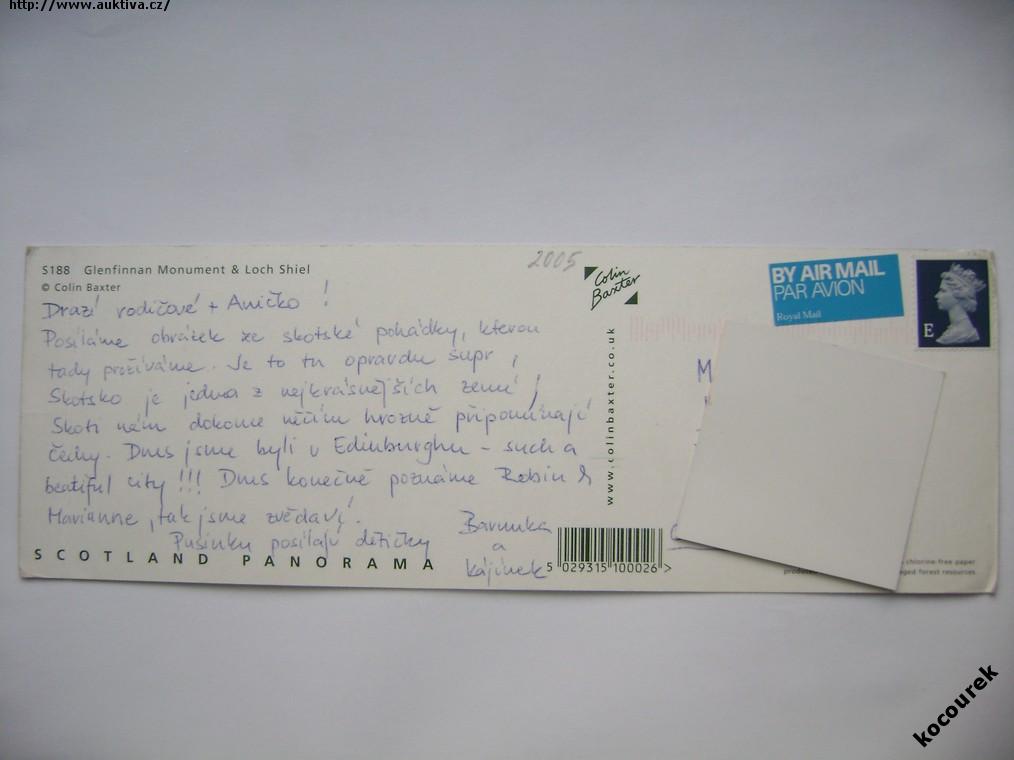 http://www.auktiva.cz/
S188 Glenfinnan Monument & Loch Shiel
© Colin Baxter
2005
Drazí rodičové + Aničko !
Posíláme obrázek ze skotské pohádky, kterou
tady prožíváme. Je to tu opravdu supr,
Skotsko je jedna z nejkrásnějších zemí !
Skoti nám dokonce něčím hrozně připomínají
Čechy. Dnes jsme byli v Edinburghu - such a
beatiful city !!! Dnes konečně poznáme Robin &
Marianne, tak jsme zvědaví.
Pusinky posílají dětičky
Barunka
a
kájínek
SCOTLAND PANORAMA
Colin
Baxter
www.colinbaxter.co.uk
5 029315 100026 >
BY AIR MAIL
PAR AVION
Royal Mail
E
M
chlorine-free paper
forest resources.
kocourek